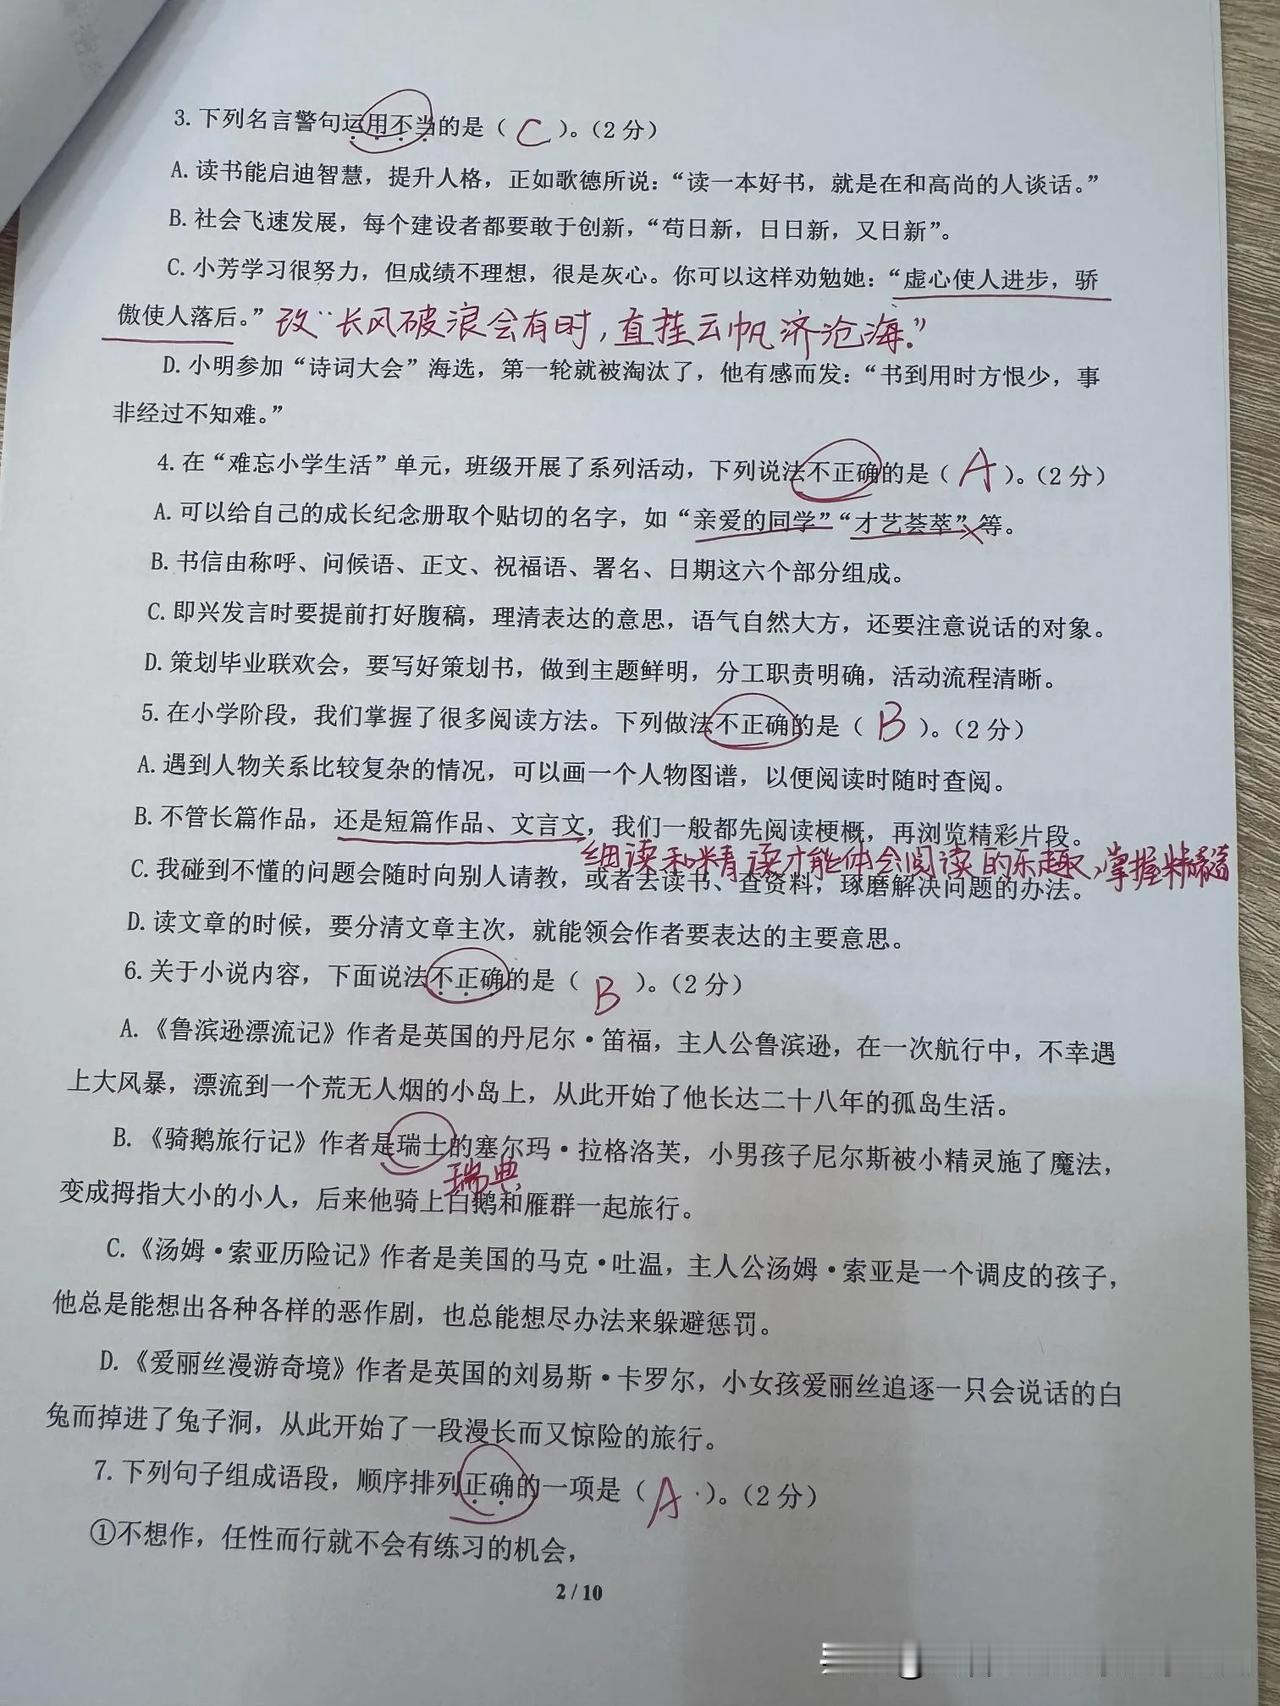 3. 下列名言警句运用不当的是（ C ）。（2 分）
A. 读书能启迪智慧，提升人格，正如歌德所说：“读一本好书，就是在和高尚的人谈话。”
B. 社会飞速发展，每个建设者都要敢于创新，“苟日新，日日新，又日新”。
C. 小芳学习很努力，但成绩不理想，很是灰心。你可以这样劝勉她：“虚心使人进步，骄
傲使人落后。” 改“长风破浪会有时，直挂云帆济沧海。”
D. 小明参加“诗词大会”海选，第一轮就被淘汰了，他有感而发：“书到用时方恨少，事
非经过不知难。”
4. 在“难忘小学生活”单元，班级开展了系列活动，下列说法不正确的是（ A ）。（2 分）
A. 可以给自己的成长纪念册取个贴切的名字，如“亲爱的同学”“才艺荟萃”等。
B. 书信由称呼、问候语、正文、祝福语、署名、日期这六个部分组成。
C. 即兴发言时要提前打好腹稿，理清表达的意思，语气自然大方，还要注意说话的对象。
D. 策划毕业联欢会，要写好策划书，做到主题鲜明，分工职责明确，活动流程清晰。
5. 在小学阶段，我们掌握了很多阅读方法。下列做法不正确的是（ B ）。（2 分）
A. 遇到人物关系比较复杂的情况，可以画一个人物图谱，以便阅读时随时查阅。
B. 不管长篇作品，还是短篇作品、文言文，我们一般都先阅读梗概，再浏览精彩片段。
细读和精读才能体会阅读的乐趣，掌握精髓
C. 我碰到不懂的问题会随时向别人请教，或者去读书、查资料，琢磨解决问题的办法。
D. 读文章的时候，要分清文章主次，就能领会作者要表达的主要意思。
6. 关于小说内容，下面说法不正确的是（ B ）。（2 分）
A. 《鲁滨逊漂流记》作者是英国的丹尼尔·笛福，主人公鲁滨逊，在一次航行中，不幸遇
上大风暴，漂流到一个荒无人烟的小岛上，从此开始了他长达二十八年的孤岛生活。
B. 《骑鹅旅行记》作者是瑞士的塞尔玛·拉格洛芙，小男孩子尼尔斯被小精灵施了魔法，
瑞典
变成拇指大小的小人，后来他骑上白鹅和雁群一起旅行。
C. 《汤姆·索亚历险记》作者是美国的马克·吐温，主人公汤姆·索亚是一个调皮的孩子，
他总是能想出各种各样的恶作剧，也总能想尽办法来躲避惩罚。
D. 《爱丽丝漫游奇境》作者是英国的刘易斯·卡罗尔，小女孩爱丽丝追逐一只会说话的白
兔而掉进了兔子洞，从此开始了一段漫长而又惊险的旅行。
7. 下列句子组成语段，顺序排列正确的一项是（ A ）。（2 分）
①不想作，任性而行就不会有练习的机会，
2 / 10